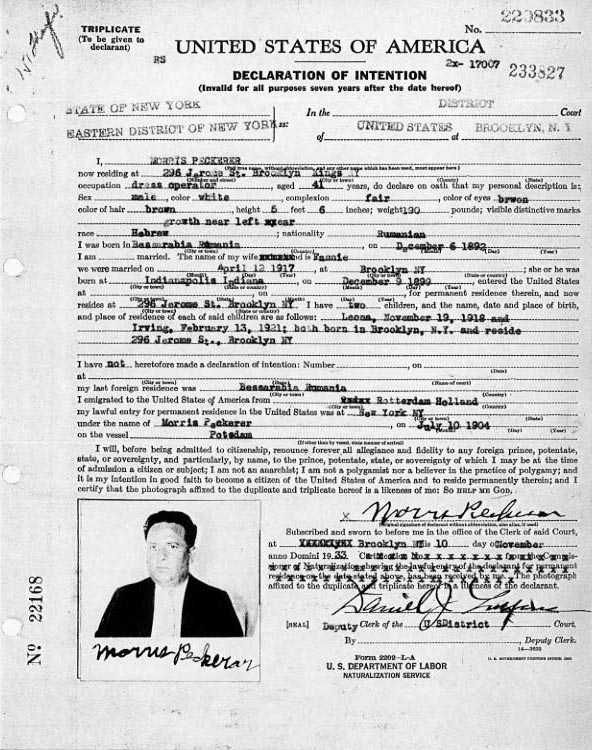 TRIPLICATE
(To be given to
declarant)
No. 220833
ES
UNITED STATES OF AMERICA
2x- 17007
233827
DECLARATION OF INTENTION
(Invalid for all purposes seven years after the date hereof)
STATE OF NEW YORK
EASTERN DISTRICT OF NEW YORK ss:
In the DISTRICT Court
of UNITED STATES at BROOKLYN, N. Y
I, MORRIS PECKERER
(Full true name, without abbreviation, and any other name which has been used, must appear here)
now residing at 296 Jerome St. Brooklyn Kings NY
(Number and street) (City or town) (County) (State)
occupation dress operator, aged 41 years, do declare on oath that my personal description is:
Sex male, color white, complexion fair, color of eyes brwon
color of hair brown, height 5 feet 6 inches; weight 190 pounds; visible distinctive marks
growth near left ear
race Hebrew; nationality Rumanian
I was born in Bessarabia Rumania, on December 6 1892
I am married. The name of my wife is Fannie
we were married on April 12 1917, at Brooklyn NY; she or he was
born at Indianapolis Indiana, on December 9 1899, entered the United States
at, on, for permanent residence therein, and now
resides at 296 Jerome St. Brooklyn NY. I have two children, and the name, date and place of birth,
and place of residence of each of said children are as follows: Leona, November 19, 1918 and
Irving, February 13, 1921; both born in Brooklyn, N.Y. and reside
296 Jerome St., Brooklyn NY
I have not heretofore made a declaration of intention: Number, on
(Date)
at
(City or town) (State) (Name of court)
my last foreign residence was Bessarabia Rumania
(City or town) (Country)
I emigrated to the United States of America from Rotterdam Holland
(City or town) (Country)
my lawful entry for permanent residence in the United States was at New York NY
(City or town) (State)
under the name of Morris Peckerer, on July 10 1904
(Month) (Day) (Year)
on the vessel Potsdam
(If other than by vessel, state manner of arrival)
I will, before being admitted to citizenship, renounce forever all allegiance and fidelity to any foreign prince, potentate,
state, or sovereignty, and particularly, by name, to the prince, potentate, state, or sovereignty of which I may be at the time
of admission a citizen or subject; I am not an anarchist; I am not a polygamist nor a believer in the practice of polygamy; and
it is my intention in good faith to become a citizen of the United States of America and to reside permanently therein; and I
certify that the photograph affixed to the duplicate and triplicate hereof is a likeness of me: SO HELP ME GOD.
x Morris Peckerar
(Original signature of declarant without abbreviation, also alias, if used)
Subscribed and sworn to before me in the office of the Clerk of said Court,
at Brooklyn NY this 10 day of November
anno Domini 1933 Certification No from the Commis-
sioner of Naturalization showing the lawful entry of the declarant for permanent
residence on the date stated above, has been received by me. The photograph
affixed to the duplicate and triplicate hereof is a likeness of the declarant.
[SEAL] Deputy Clerk of the U S District Court.
By, Deputy Clerk.
Form 2202-L-A
U. S. DEPARTMENT OF LABOR
NATURALIZATION SERVICE
14-2623
U. S. GOVERNMENT PRINTING OFFICE
Morris Peckerar
No 22168